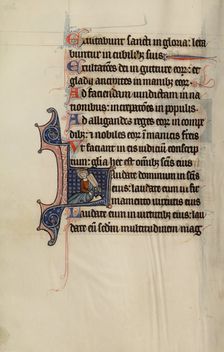 Exultabunt sancti in gloria: leta
buntur in cubilib; suis;
Exultatões dei in gutture eoꝝ: et
gladij ancipites in manib; eoꝝ
Ad faciendam uindictam in na
tionibus: increpatões in populis
Ad alligandos reges eoꝝ in comp
dib; et nobiles eoꝝ i manicis ferreis
Ut faciant in eis iudiciũ conscrip
tum: glĩa hec est om̃ib; sc̃is eius
Laudate dominum in sc̃is
eius: laudate eum in fir
mamento uirtutis eius
Laudate eum in uirtutib; eius: lau
date eũ sc̃dm multitudinem mag